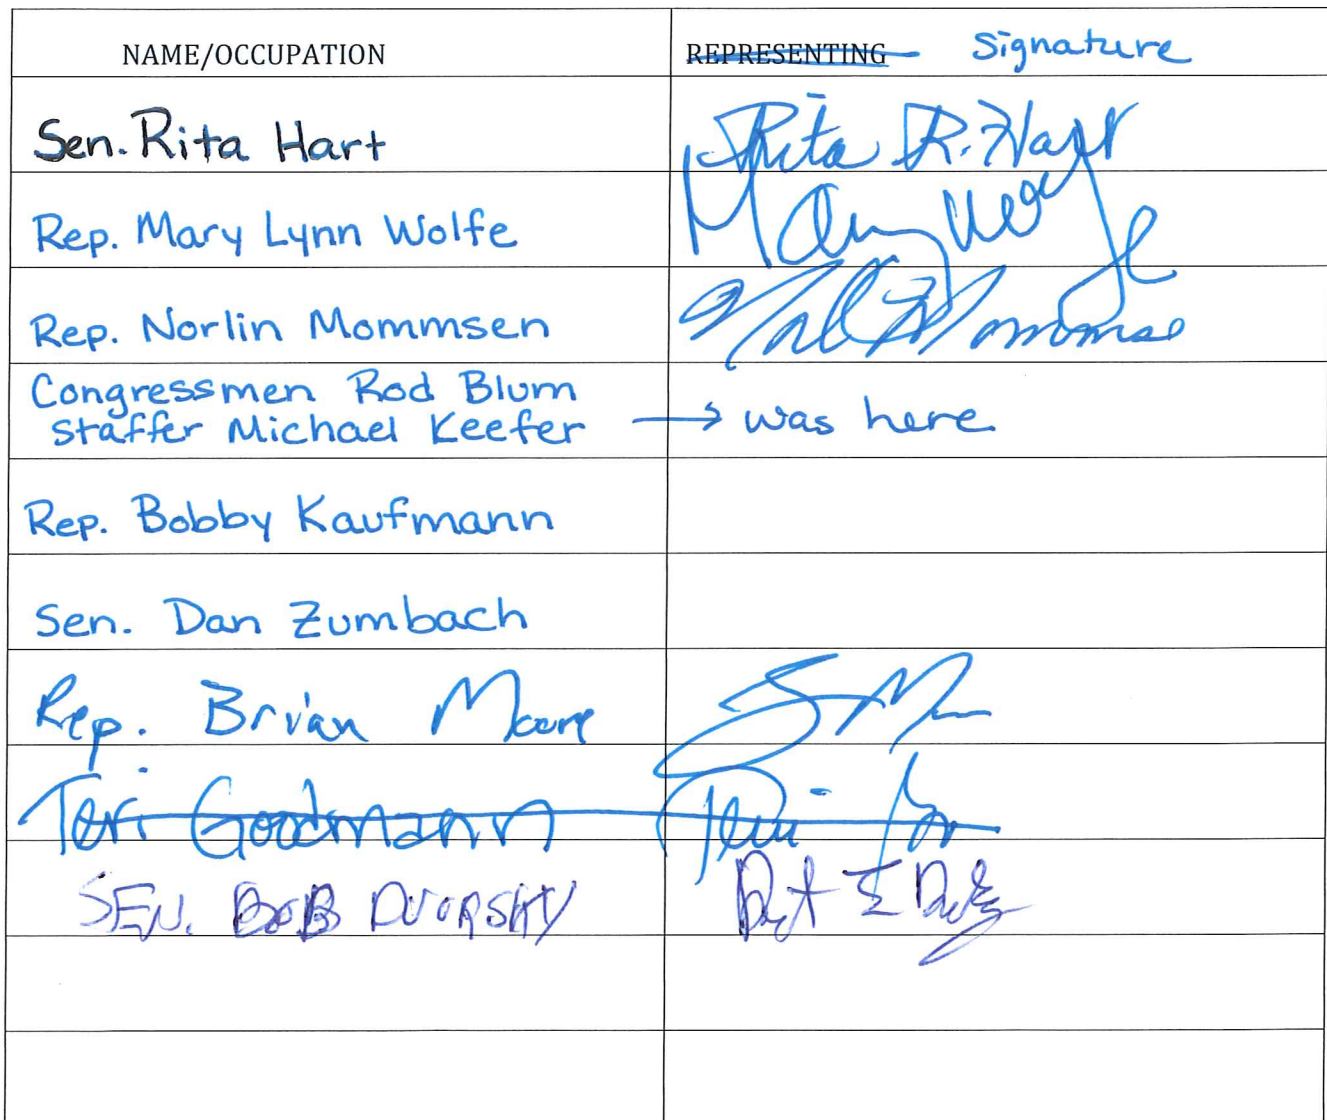 NAME/OCCUPATION REPRESENTING Signature
Sen. Rita Hart Rita R. Hart
Rep. Mary Lynn Wolfe Mary Wolfe
Rep. Norlin Mommsen Mommse
Congressmen Rod Blum
Staffer Michael Keefer → was here
Rep. Bobby Kaufmann
Sen. Dan Zumbach
Rep. Brian Moore
Teri Goodmann Teri
SEN. BOB DVORSKY